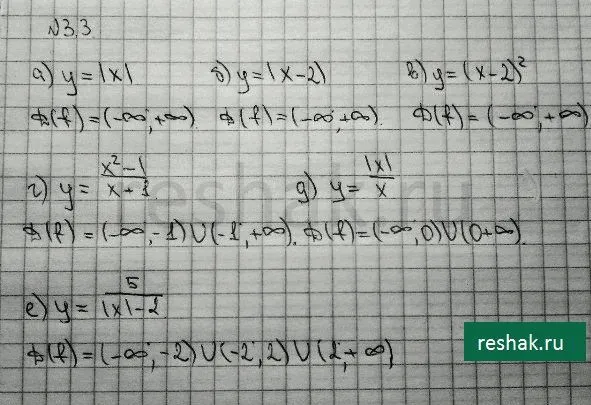 №3.3
а) y=|x| б) y=|x-2| в) y=(x-2)²
D(f)=(-∞;+∞). D(f)=(-∞;+∞). D(f)=(-∞;+∞)
г) y=\frac{x²-1}{x+1}. д) y=\frac{|x|}{x}
D(f)=(-∞,-1)∪(-1,+∞). D(f)=(-∞,0)∪(0+∞).
е) y=\frac{5}{|x|-2}
D(f)=(-∞,-2)∪(-2;2)∪(2;+∞)
reshak.ru